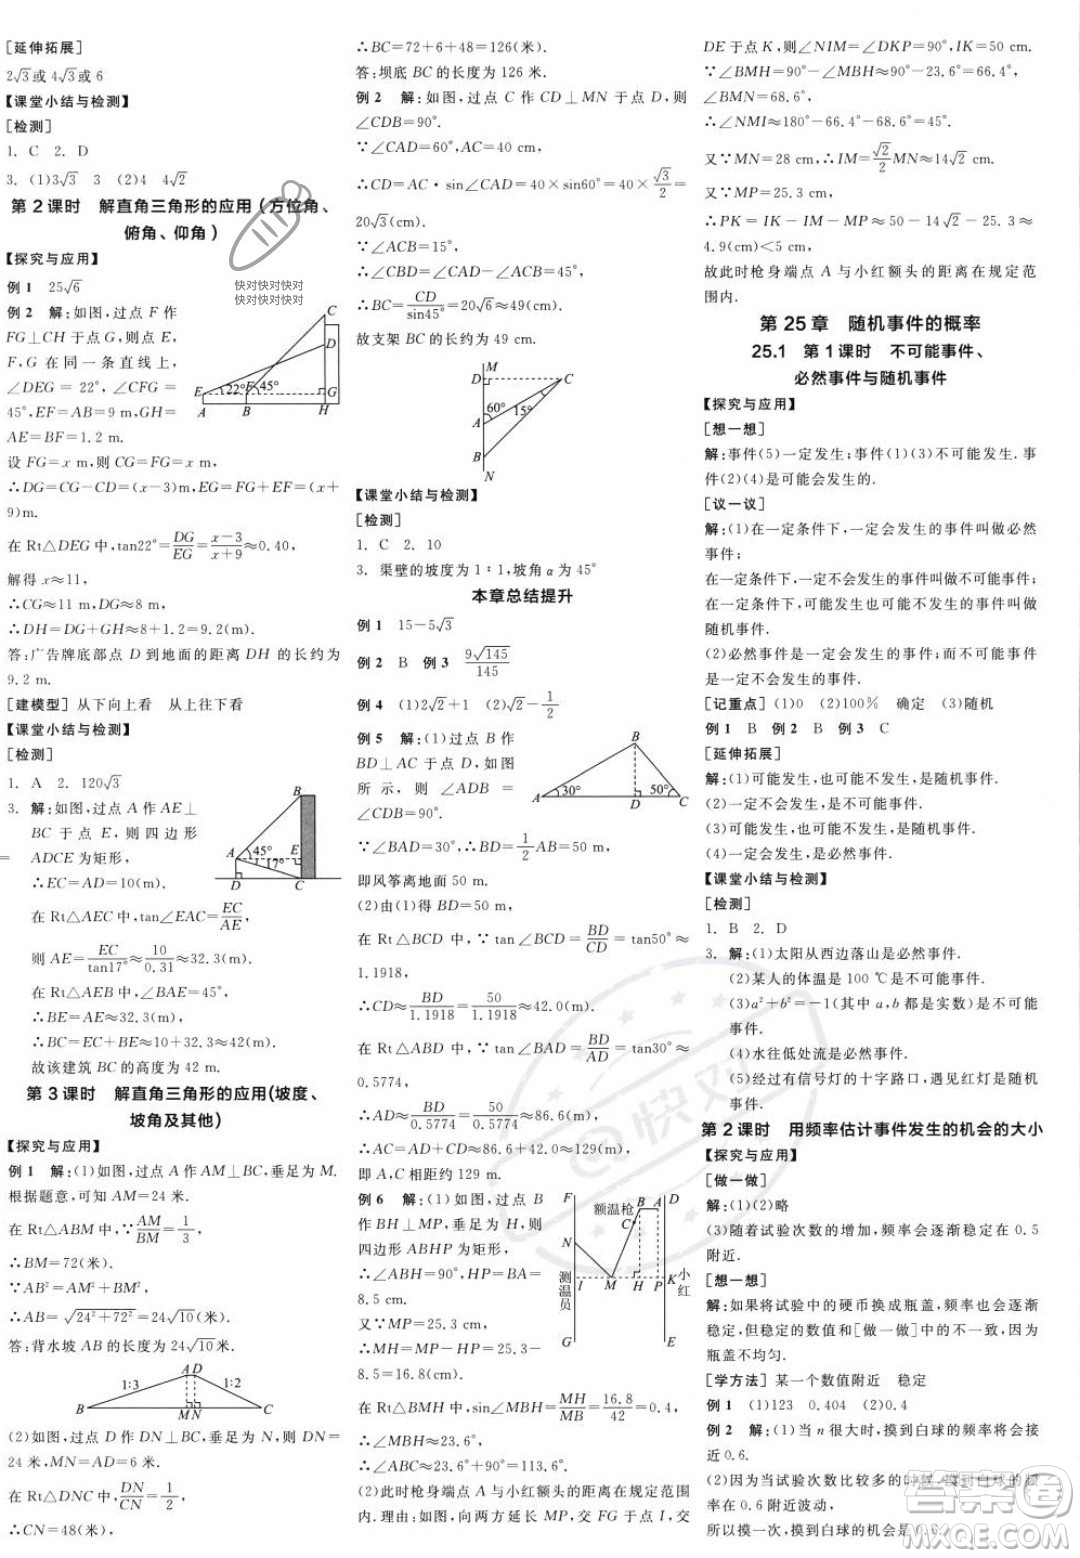 [延伸拓展]
2√3或 4√3或 6
【课堂小结与检测】
[检测]
1. C  2. D
3. (1)3√3  3  (2)4  4√2
第 2 课时  解直角三角形的应用(方位角、
俯角、仰角)
【探究与应用】
例 1  25√6
例 2  解:如图,过点 F 作
FG⊥CH 于点 G,则点 E,
F,G 在同一条直线上,
∠DEG = 22°,∠CFG =
45°,EF=AB=9 m,GH=
AE=BF=1.2 m.
设 FG=x m,则 CG=FG=x m,
∴DG=CG-CD=(x-3)m,EG=FG+EF=(x+
9)m.
在 Rt△DEG 中,tan22°=DG/EG=(x-3)/(x+9)≈0.40,
解得 x≈11,
∴CG≈11 m,DG≈8 m,
∴DH=DG+GH≈8+1.2=9.2(m).
答:广告牌底部点 D 到地面的距离 DH 的长约为
9.2 m.
[建模型] 从下向上看  从上往下看
【课堂小结与检测】
[检测]
1. A  2. 120√3
3. 解:如图,过点 A 作 AE⊥
BC 于点 E,则四边形
ADCE 为矩形,
∴EC=AD=10(m).
在 Rt△AEC 中,tan∠EAC=EC/AE,
则 AE=EC/tan17°≈10/0.31≈32.3(m).
在 Rt△AEB 中,∠BAE=45°,
∴BE=AE≈32.3(m),
∴BC=EC+BE≈10+32.3≈42(m).
故该建筑 BC 的高度为 42 m.
第 3 课时  解直角三角形的应用(坡度、
坡角及其他)
【探究与应用】
例 1  解:(1)如图,过点 A 作 AM⊥BC,垂足为 M.
根据题意,可知 AM=24 米.
在 Rt△ABM 中,∵AM/BM=1/3,
∴BM=72(米).
∵AB²=AM²+BM²,
∴AB=√(24²+72²)=24√10(米).
答:背水坡 AB 的长度为 24√10 米.
A D
1:3  1:2
B  M N  C
(2)如图,过点 D 作 DN⊥BC,垂足为 N,则四边
形 AMND 为矩形,∴DN=AM=24 米,MN=AD=6 米.
在 Rt△DNC 中,∵DN/CN=1/2,
∴CN=48(米),
∴BC=72+6+48=126(米).
答:坝底 BC 的长度为 126 米.
例 2  解:如图,过点 C 作 CD⊥MN 于点 D,则
∠CDB=90°.
∵∠CAD=60°,AC=40 cm,
∴CD=AC·sin∠CAD=40×sin60°=40×√3/2=
20√3(cm).
∵∠ACB=15°,
∴∠CBD=∠CAD-∠ACB=45°,
∴BC=CD/sin45°=20√6≈49(cm).
故支架 BC 的长度约为 49 cm.
M
D  C
60°  15°
A
B
N
【课堂小结与检测】
[检测]
1. C  2. 10
3. 渠壁的坡度为 1∶1,坡角 α 为 45°
本章总结提升
例 1  15-5√3
例 2  B  例 3  9√145/145
例 4  (1)2√2+1  (2)√2-1/2
例 5  解:(1)过点 B 作
BD⊥AC 于点 D,如图
所示,则∠ADB=
∠CDB=90°.
∵∠BAD=30°,∴BD=1/2AB=50(m).
即风筝离地面 50 m.
(2)由(1)得 BD=50 m,
在 Rt△BCD 中,∵tan∠BCD=BD/CD=tan50°≈
1.1918,
∴CD≈BD/1.1918=50/1.1918≈42.0(m).
在 Rt△ABD 中,∵tan∠BAD=BD/AD=tan30°≈
0.5774,
∴AD≈BD/0.5774=50/0.5774≈86.6(m),
∴AC=AD+CD≈86.6+42.0≈129(m).
即 A,C 相距约 129 m.
例 6  解:(1)如图,过点 B
作 BH⊥MP,垂足为 H,则
四边形 ABHP 为矩形,
∴∠ABH=90°,HP=BA=
8.5 cm.
又∵MP=25.3 cm,
∴MH=MP-HP=25.3-
8.5=16.8(cm).
在 Rt△BMH 中,sin∠MBH=MH/MB=16.8/42=0.4,
∴∠MBH≈23.6°,
∴∠ABC≈90°+23.6°=113.6°.
(2)此时枪身端点 A 与小红额头的距离在规定范
围内.理由:如图,向两方延长 MP,交 FG 于点 I,交
DE 于点 K,则∠NIM=∠DKP=90°,IK=50 cm.
∵∠BMH=90°-∠MBH≈90°-23.6°=66.4°,
∠BMN=68.6°,
∴∠NMI≈180°-66.4°-68.6°=45°.
又∵MN=28 cm,∴IM=√2/2MN≈14√2 cm.
又∵MP=25.3 cm,
∴PK=IK-IM-MP≈50-14√2-25.3≈
4.9(cm)<5 cm,
故此时枪身端点 A 与小红额头的距离在规定范
围内.
第 25 章  随机事件的概率
25.1  第 1 课时  不可能事件、
必然事件与随机事件
【探究与应用】
[想一想]
解:事件(5)一定发生;事件(1)(3)不可能发生.事
件(2)(4)是可能会发生的.
[议一议]
解:(1)在一定条件下,一定会发生的事件叫做必然
事件;
在一定条件下,一定不会发生的事件叫做不可能事件;
在一定条件下,可能发生也可能不会发生的事件叫做
随机事件.
(2)必然事件是一定会发生的,不可能事件是一定
不会发生的.
[记重点] (1)0  (2)100%  确定  (3)随机
例 1  B  例 2  B  例 3  C
[延伸拓展]
解:(1)可能发生,也可能不发生,是随机事件.
(2)一定不会发生,是不可能事件.
(3)可能发生,也可能不发生,是随机事件.
(4)一定不会发生,是不可能事件.
【课堂小结与检测】
[检测]
1. B  2. D
3. 解:(1)太阳从西边落山是必然事件.
(2)某人的体温是 100 ℃是不可能事件.
(3)a²+b²=-1(其中 a,b 都是实数)是不可能
事件.
(4)水往低处流是必然事件.
(5)经过有信号灯的十字路口,遇见红灯是随机
事件.
第 2 课时  用频率估计事件发生的机会的大小
【探究与应用】
[做一做]
解:(1)(2)略
(3)随着试验次数的增加,频率会逐渐稳定在 0.5
附近.
[想一想]
解:如果将试验中的硬币换成瓶盖,频率也会逐渐
稳定.但稳定的数值和[做一做]中的不同,因为
瓶盖不均匀.
[学方法] 某一个数值附近  稳定
例 1  (1)123  0.404  (2)0.4
例 2  解:(1)当 n 很大时,摸到白球的频率将会接
近 0.6.
(2)因为当试验次数比较多的时候,摸到白球的频
率在 0.6 附近波动,
所以摸一次,摸到白球的机会约是 0.6.
快对快对快对
快对快对快对
@快对
答案圈
MXQE.COM